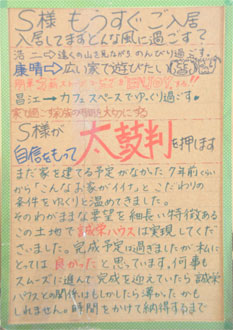 S様 もうすぐご入居
入居してまずどんな風に過ごす?
浩二→遠くの山を見ながらのんびり過ごす。
康晴→広い家で遊びたい
昌江→カフェスペースでゆっくり過ごす。
家で過ごす家族の時間を大切にする
S様が
自信をもって 大鼓判 を押します
まだ家を建てる予定がなかった7年前くらい
から「こんなお家がイイナ。」とこだわりの
条件をゆっくりと温めてきました。
そのわがままな要望を細長い特徴ある
この土地で誠栄ハウスは実現してくだ
さいました。完成予定は過ぎましたが私に
とっては良かったと思っています。何事も
スムーズに進んで完成を迎えていたら誠栄
ハウスとの関係はもしかしたら薄かったかも
しれません。時間をかけて納得するまで